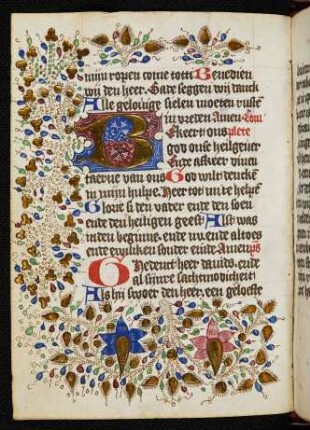 mijn ropen come totti Benedien
wij den heer. Gade seggen wij danck
Alle gelouige sielen moeten rusten
in vreden Amen Com
Bekeert ons plete
god onse heilgeuer
Ende afkeer dinen
taerne van ons God wilt dencken
in mijn hulpe. Heer tot mi te helpen
Glorie si den vader ende den soen
ende den heiligen geest Alst was
inden beginne. ende nu. ende altoes
ende ewelicken sonder ende. Amen ps
Ghedenct heer dauids. ende
al sijnre sachtmodicheit
Als hij swoer den heer. een geloefte